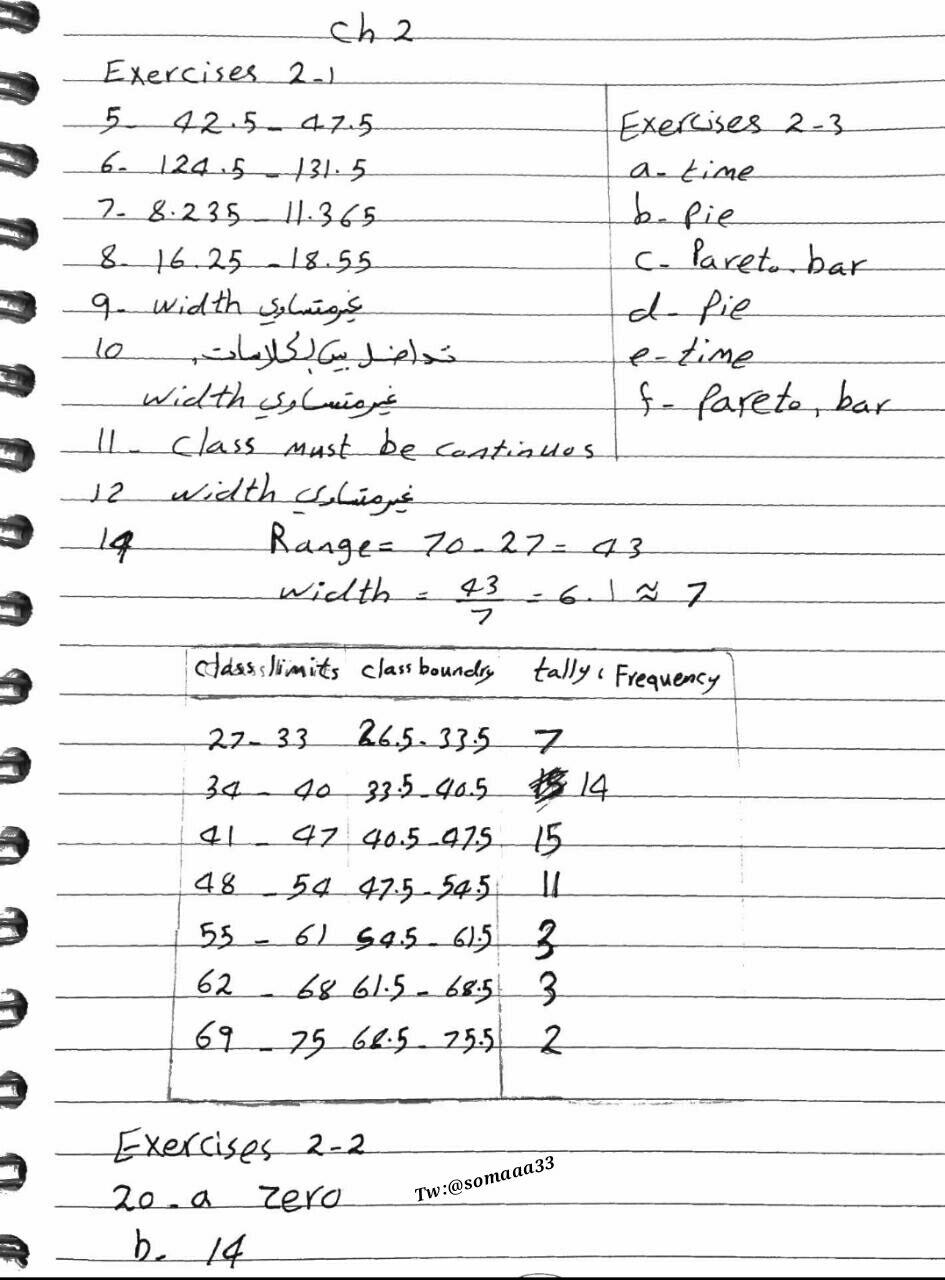 Ch 2
Exercises 2-1
5- 42.5 - 47.5
6- 124.5 - 131.5
7- 8.235 - 11.365
8- 16.25 - 18.55
9- width غير متساوي
10 تداخل بين الكلاسات,
width غير متساوي
11- class must be continuos
12 width غير متساوي
14 Range = 70 - 27 = 43
width = 43/7 = 6.1 ≈ 7
Exercises 2-3
a- time
b- Pie
c- Pareto. bar
d- Pie
e- time
f- Pareto, bar
class limits class boundry tally, Frequency
27 - 33 26.5 - 33.5 7
34 - 40 33.5 - 40.5 14
41 - 47 40.5 - 47.5 15
48 - 54 47.5 - 54.5 11
55 - 61 54.5 - 61.5 3
62 - 68 61.5 - 68.5 3
69 - 75 68.5 - 75.5 2
Exercises 2-2
20 - a zero
b- 14
Tw:@somaaa33